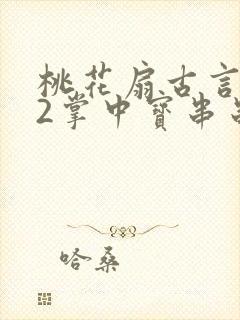 桃花扇古言
2掌中寳串
哈桑